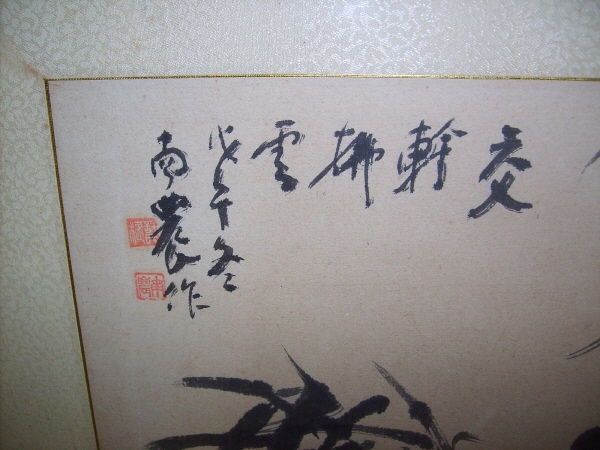 交軒拂雲
戊午冬
南農作